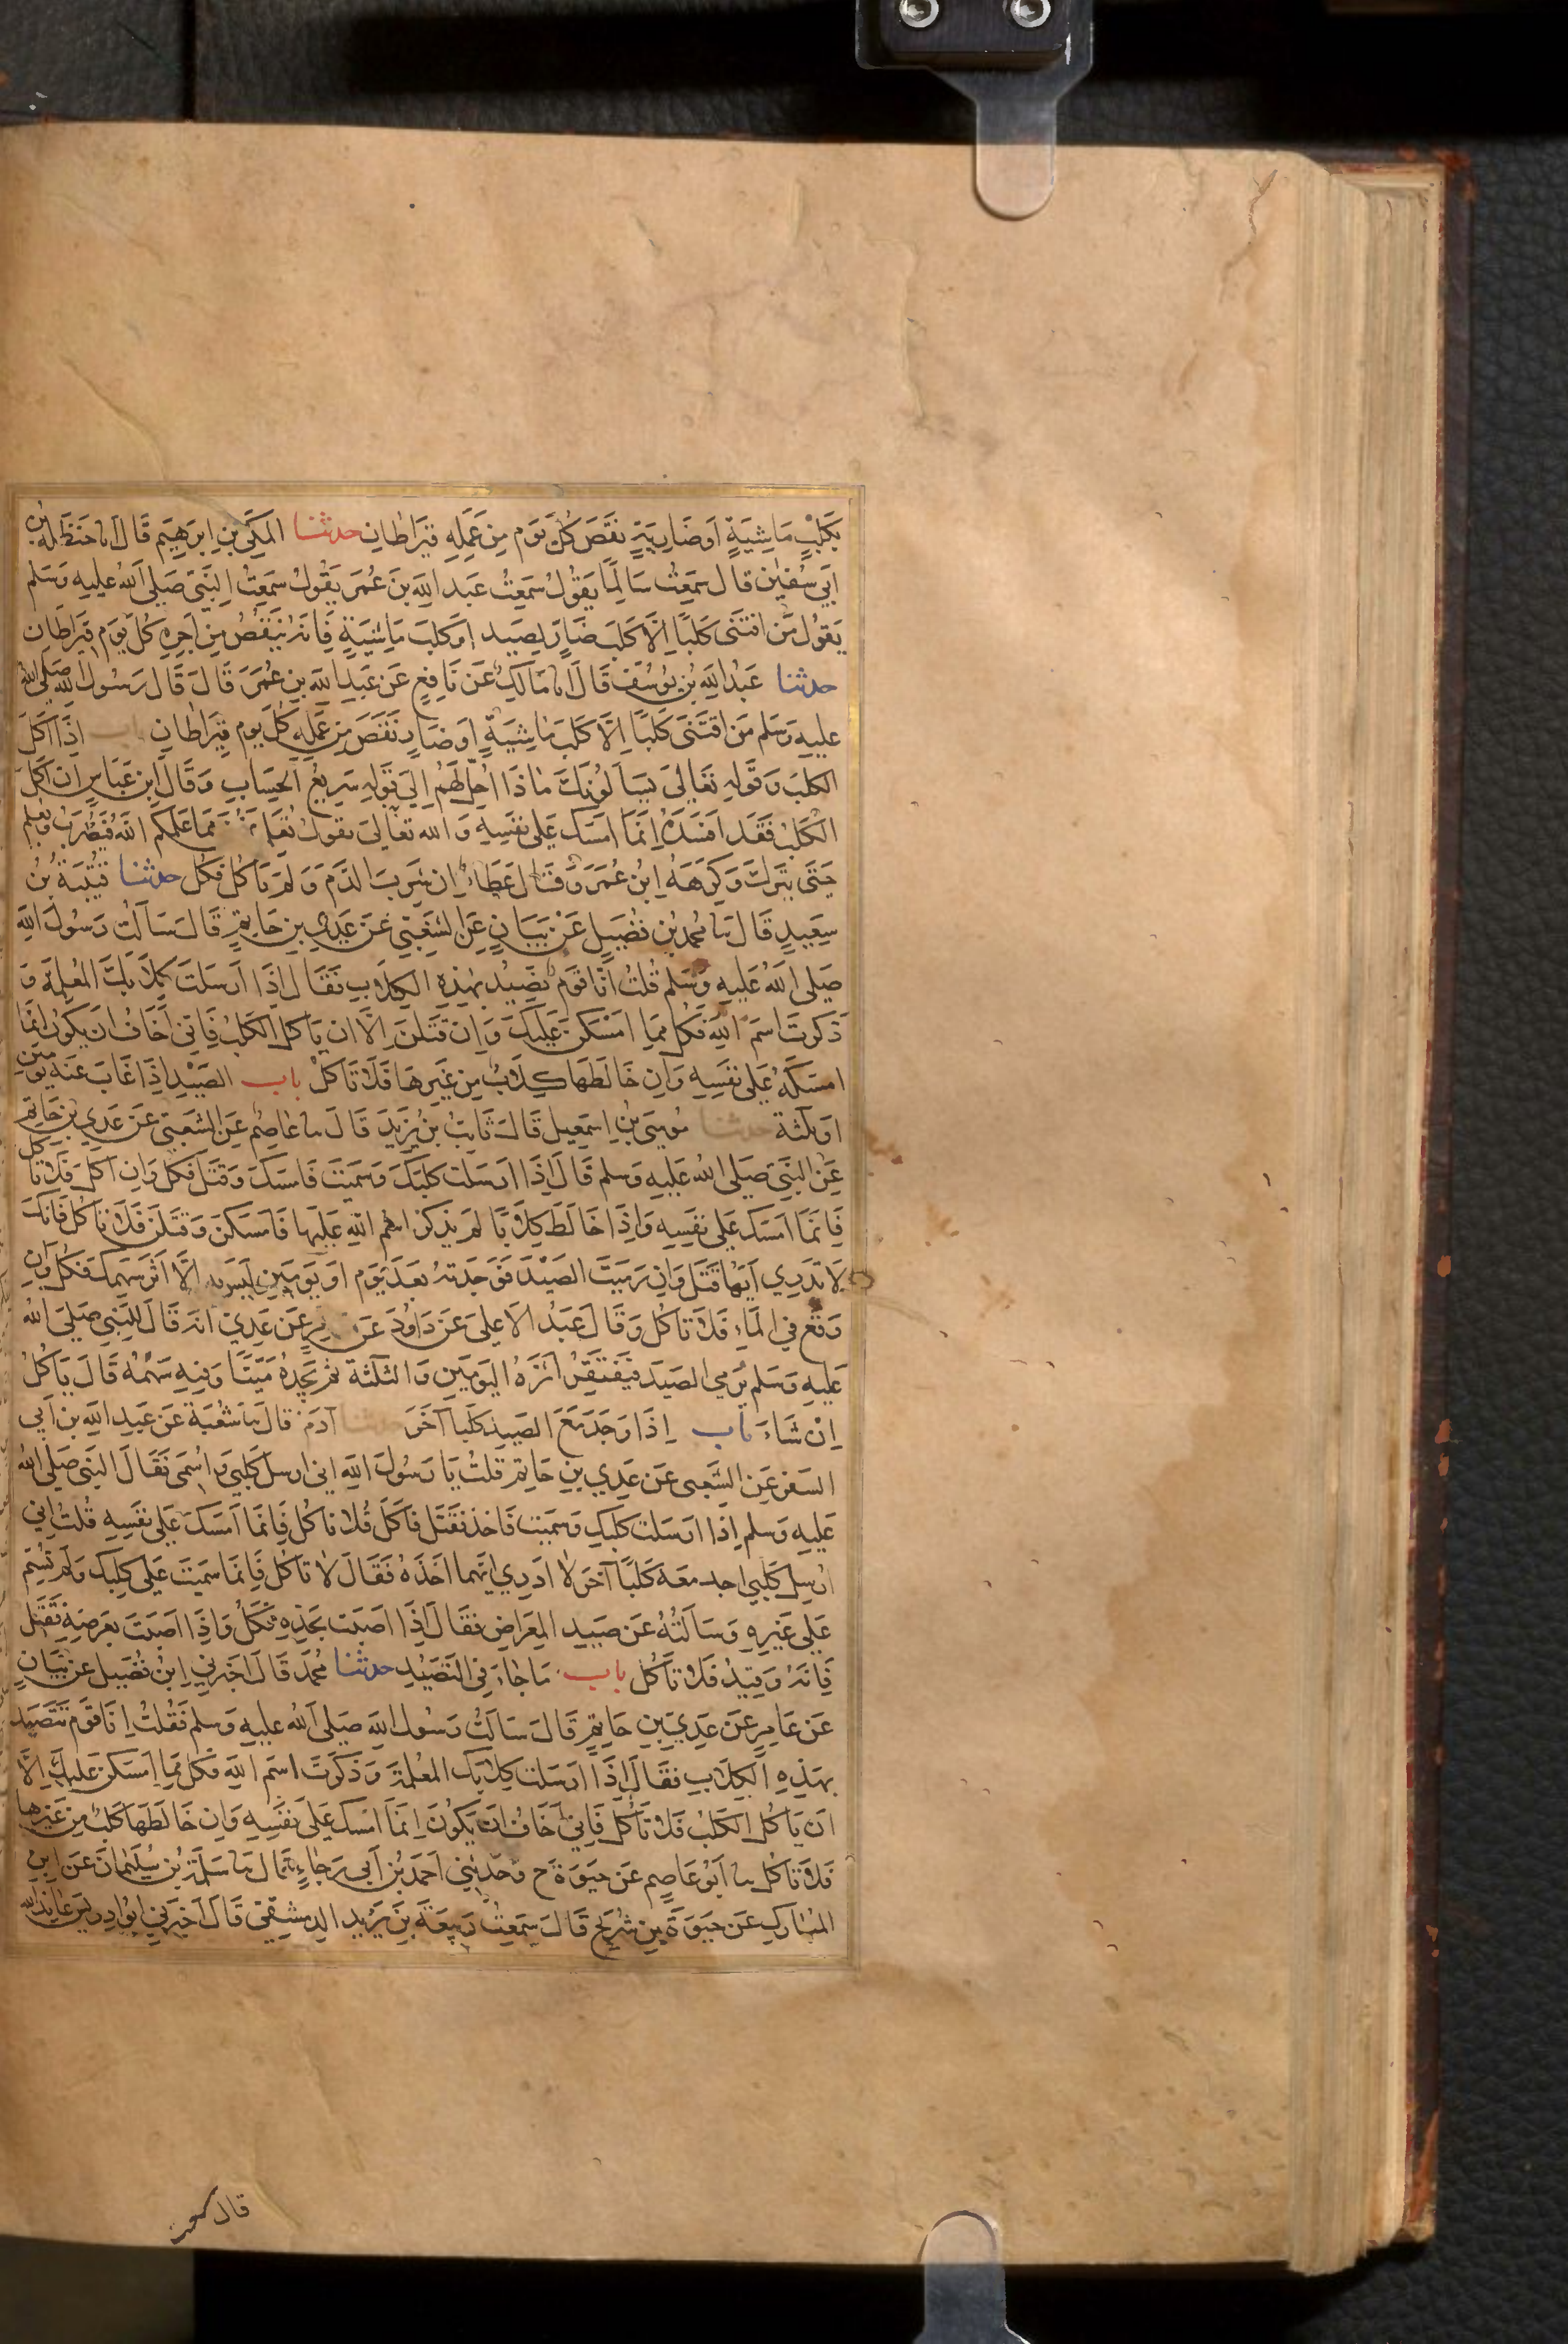 بِكَلْبِ مَاشِيَةٍ اَوْ ضَارِيَةٍ نَقَصَ كُلَّ يَوْمٍ مِنْ عَمَلِهِ قِيرَاطَانِ حدثنا المَكِّيُّ بن اِبْرَهِيمَ قَالَ انا حَنْظَلَةُ بنُ
اَبي سُفْيٰنَ قال سَمِعْتُ سَالِمًا يَقُولُ سَمِعْتُ عَبد اللهِ بنَ عُمَرَ يَقُولُ سَمِعْتُ النَّبَيَّ صَلى اللهُ عليهِ وَسَلم
يَقُولُ مَنِ اقْتَنَى كَلبًا اِلَّا كَلبَ ضَارٍ لِصَيد اوْ كَلبَ مَاشِيَةٍ فَاِنهُ يَنْقُصُ مِنْ اَجرِهِ كُلَّ يَوم قِيرَاطَانِ
حدثنا عَبْدُ اللهِ بنُ يُوسُفَ قَالَ انا مَالِكٌ عَن نَافِعٍ عَن عَبدِ اللهِ بنِ عُمَرَ قَالَ قَالَ رَسُولُ اللهِ صَلى الله
عليهِ وَسَلم مَنِ اقتَنَى كَلبًا اِلَّا كَلبَ مَاشِيَةٍ اَوْ ضَارٍ نَقَصَ مِن عَمَلِهِ كُلَّ يوم قِيرَاطَانِ باب اِذَا اَكَلَ
الكلبُ وَقَولهِ تَعَالىَ يَسْاَلُونَكَ مَاذَا اُحِلَّ لَهُمْ اِلَى قَولِهِ سَرِيعُ الحِسَابِ وَقَالَ ابن عَبَّاسٍ اِن اَكَلَ
الكَلبُ فَقَد اَفسَدَهُ اِنَّمَا اَمسَكَ عَلى نَفسِهِ وَالله تعَالىَ يقولُ تُعَلِّمُونَهُنَّ مِمَا عَلمَكُم اللهُ فَتُضْرَبُ وَتُعَلمُ
حَتَّى يَتْرُكَ وَكَرِهَهُ ابْنُ عُمَرَ وَقَالَ عَطَاءٌ اِن شَرِبَ الدَّمَ وَلَم يَاكُل فَكُل حدثنا قُتَيبَةُ بنُ
سَعِيدٍ قَالَ نا مُحَمد بن فُضَيلٍ عَنْ بَيَانٍ عَنِ الشَّعْبِيِّ عَنْ عَدِيِّ بنِ حَاتِمٍ قَالَ سَاَلْتُ رَسُولَ اللهِ
صَلى اللهُ عليهِ وَسَلم قُلتُ اِنَّا قَوم نَصِيدُ بِهَذِهِ الكِلَابِ فَقَالَ اِذَا اَرْسَلتَ كِلَابَكَ المُعلمَةَ وَ
ذَكَرتَ اسمَ اللهِ فَكُل مِمَّا اَمْسَكنَ عَلَيكَ وَاِن قَتَلنَ اِلَّا ان يَاكُلَ الكَلبُ فَاِنِّي اَخَافُ ان يَكُونَ اِنَّمَا
امسَكَهُ عَلى نَفسِهِ وَاِن خَالَطَهَا كِلَابٌ مِن غَيرِهَا فَلَا تَاكُلْ باب الصَّيْدِ اِذَا غَابَ عَنه يَومَينِ
اوثلثة حدثنا مُوسَى بن اِسمَعِيلَ قَالَ ثَابتُ بن يَزِيدَ قَالَ نا عَاصِمٌ عَنِ الشَّعبِيِّ عَن عَدِيِّ بنِ حَاتِمٍ
عَنِ النَّبَيِّ صَلى اللهُ عَليهِ وَسلم قَالَ اِذَا اَرسَلتَ كَلبَكَ وَسَمَّيتَ فَامسَكَ وَقَتَلَ فَكُل وَاِن اَكَلَ فَلَا تَاكُل
فَاِنَّمَا اَمسَكَ عَلى نَفسِهِ وَاِذَا خَالَطَ كِلَابًا لَم يُذكَرِ اسمُ اللهِ عَليهَا فَامسَكنَ وَقَتَلنَ فَلَا تَاكُل فَاِنَّكَ
لَا تَدرِي اَيُّهَا قَتَلَ وَاِن رَمَيتَ الصَّيْدَ فَوَجَدتهُ بَعدَ يَوم اَو يَومَينِ لَيسَ بهِ اِلَّا اَثَرُ سَهمِكَ فَكُل وَاِن
وَقَعَ في المَاءِ فَلَا تَاكُل وَقَالَ عَبْدُ الاَعلىَ عَن دَاوُدَ عَن عَامِرٍ عَن عَدِيٍّ انه قَالَ لِلنبيِ صَلىَ الله
عَليهِ وَسَلم يَرمي الصَيدَ فَيَقتَفِرُ اَثَرَهُ اليَومَينِ وَالثلَاثَةَ ثم يَجِدُهُ مَيِّتًا وَفِيهِ سَهْمُهُ قَالَ يَاكُلُ
اِنْ شَاءَ باب اِذَا وَجَدَ مَعَ الصَيدِ كَلبًا آخَرَ حدثنا آدمُ قال نا شُعْبَةُ عَن عَبدِ اللهِ بن اَبي
السَفرِ عَنِ الشَّعبي عَن عَدِي بنِ حَاتِم قلتُ يَا رَسُولَ اللهِ اِني ارسِل كَلبِي وَاُسَمِّي فَقَالَ النَّبَي صَلى الله
عَليهِ وَسلم اِذَا اَرسَلتَ كَلبكَ وَسَمَّيتَ فَاخذَ فَقَتَل فَاَكَلَ فَلا تَاكُل فَاِنَّمَا اَمسَكَ عَلى نَفسِهِ قُلتُ اِني
ارْسِل كَلبِي اجد معَهُ كَلبًا آخرَ لا ادرِي اَيهما اخَذَهُ فَقَالَ لا تَاكُل فَاِنمَا سَميتَ عَلى كَلبِكَ وَلَم تُسَمِّ
عَلى غَيرِهِ وَسَاَلتُهُ عَن صَيدِ المِعرَاضِ فقَالَ اِذَا اَصَبتَ بحَدِّهِ فَكُل وَاِذَا اَصَبتَ بِعَرضِهِ فَقَتَلَ
فَاِنَّهُ وَقِيذٌ فَلَا تَاكُل باب مَا جَاءَ فِي التَّصَيُّدِ حدثنا مُحَمَّد قَالَ اخبَرني ابن فُضَيل عَن بَيَانٍ
عَن عَامِرٍ عَن عَدِيِّ بنِ حَاتِمٍ قَالَ سَاَلتُ رَسُولَ اللهِ صَلى اللهُ عليهِ وَسلم فَقُلتُ اِنَّا قَوم نَتَصَيد
بِهَذِهِ الكِلَابِ فَقَالَ اِذَا اَرسَلتَ كِلابَكَ المُعلمَةَ وَذَكَرتَ اسْمَ اللهِ فكُل مِمَّا اَمسَكنَ عَليكَ اِلَّا
ان يَاكُلَ الكَلبُ فَلَا تَاكُل فَاِنيِّ اَخَافُ ان يَكُونَ اِنَّمَا اَمْسَكَ عَلى نَفْسِهِ وَاِن خَالَطَهَا كَلبٌ مِن غَيرِهَا
فَلَا تَاكُل نا اَبُو عَاصِمٍ عَن حَيوَةَ ح وَحَدَّثنِي اَحمَدُ بن اَبي رَجَاءٍ قَالَ نا سَلَمَةُ بن سُلَيمَانَ عَنِ ابنِ
المُبَارَكِ عَن حَيوَةَ بنِ شُرَيحٍ قَالَ سَمِعتُ رَبِيعَةَ بنَ يَزِيدَ الدمشقِيَّ قَالَ اَخبَرَنِي ابُو ادريس عَائذ الله
قال سمعت